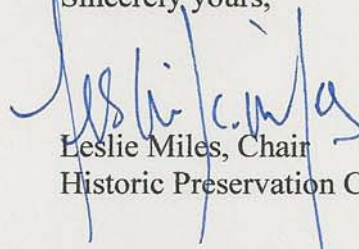 Sincerely yours,
Leslie C. Miles
Leslie Miles, Chair
Historic Preservation C